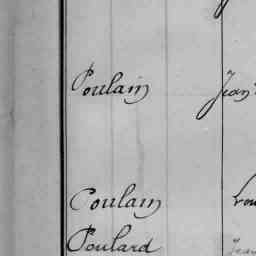 Poulain Jean
Coulain
Poulard Jean